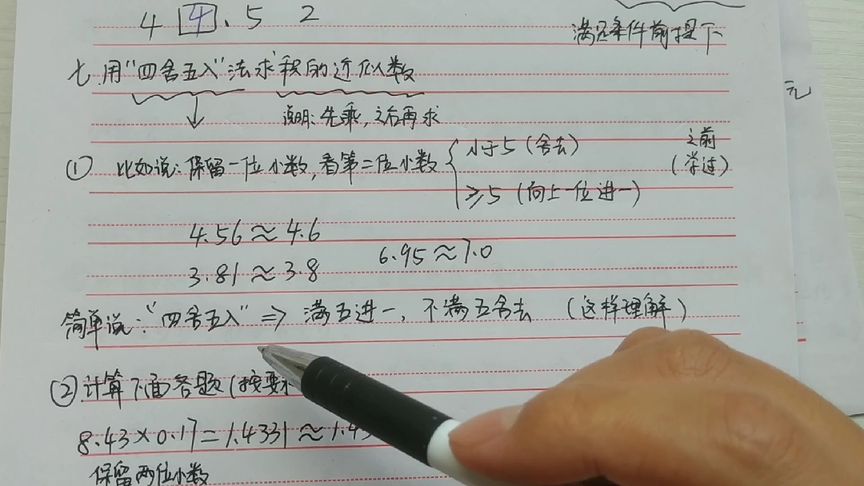 4 4 . 5 2
满足条件前提下
七.用"四舍五入"法求积的近似数
元
说明:先乘,之后再求
① 比如说:保留一位小数,看第二位小数
小于5(舍去)
≥5(向上一位进一)
之前
(学过)
4.56≈4.6
6.95≈7.0
3.81≈3.8
简单说:"四舍五入"⇒满五进一,不满五舍去(这样理解)
②计算下面各题(按要
8.43×0.17=1.4331≈1.43
保留两位小数